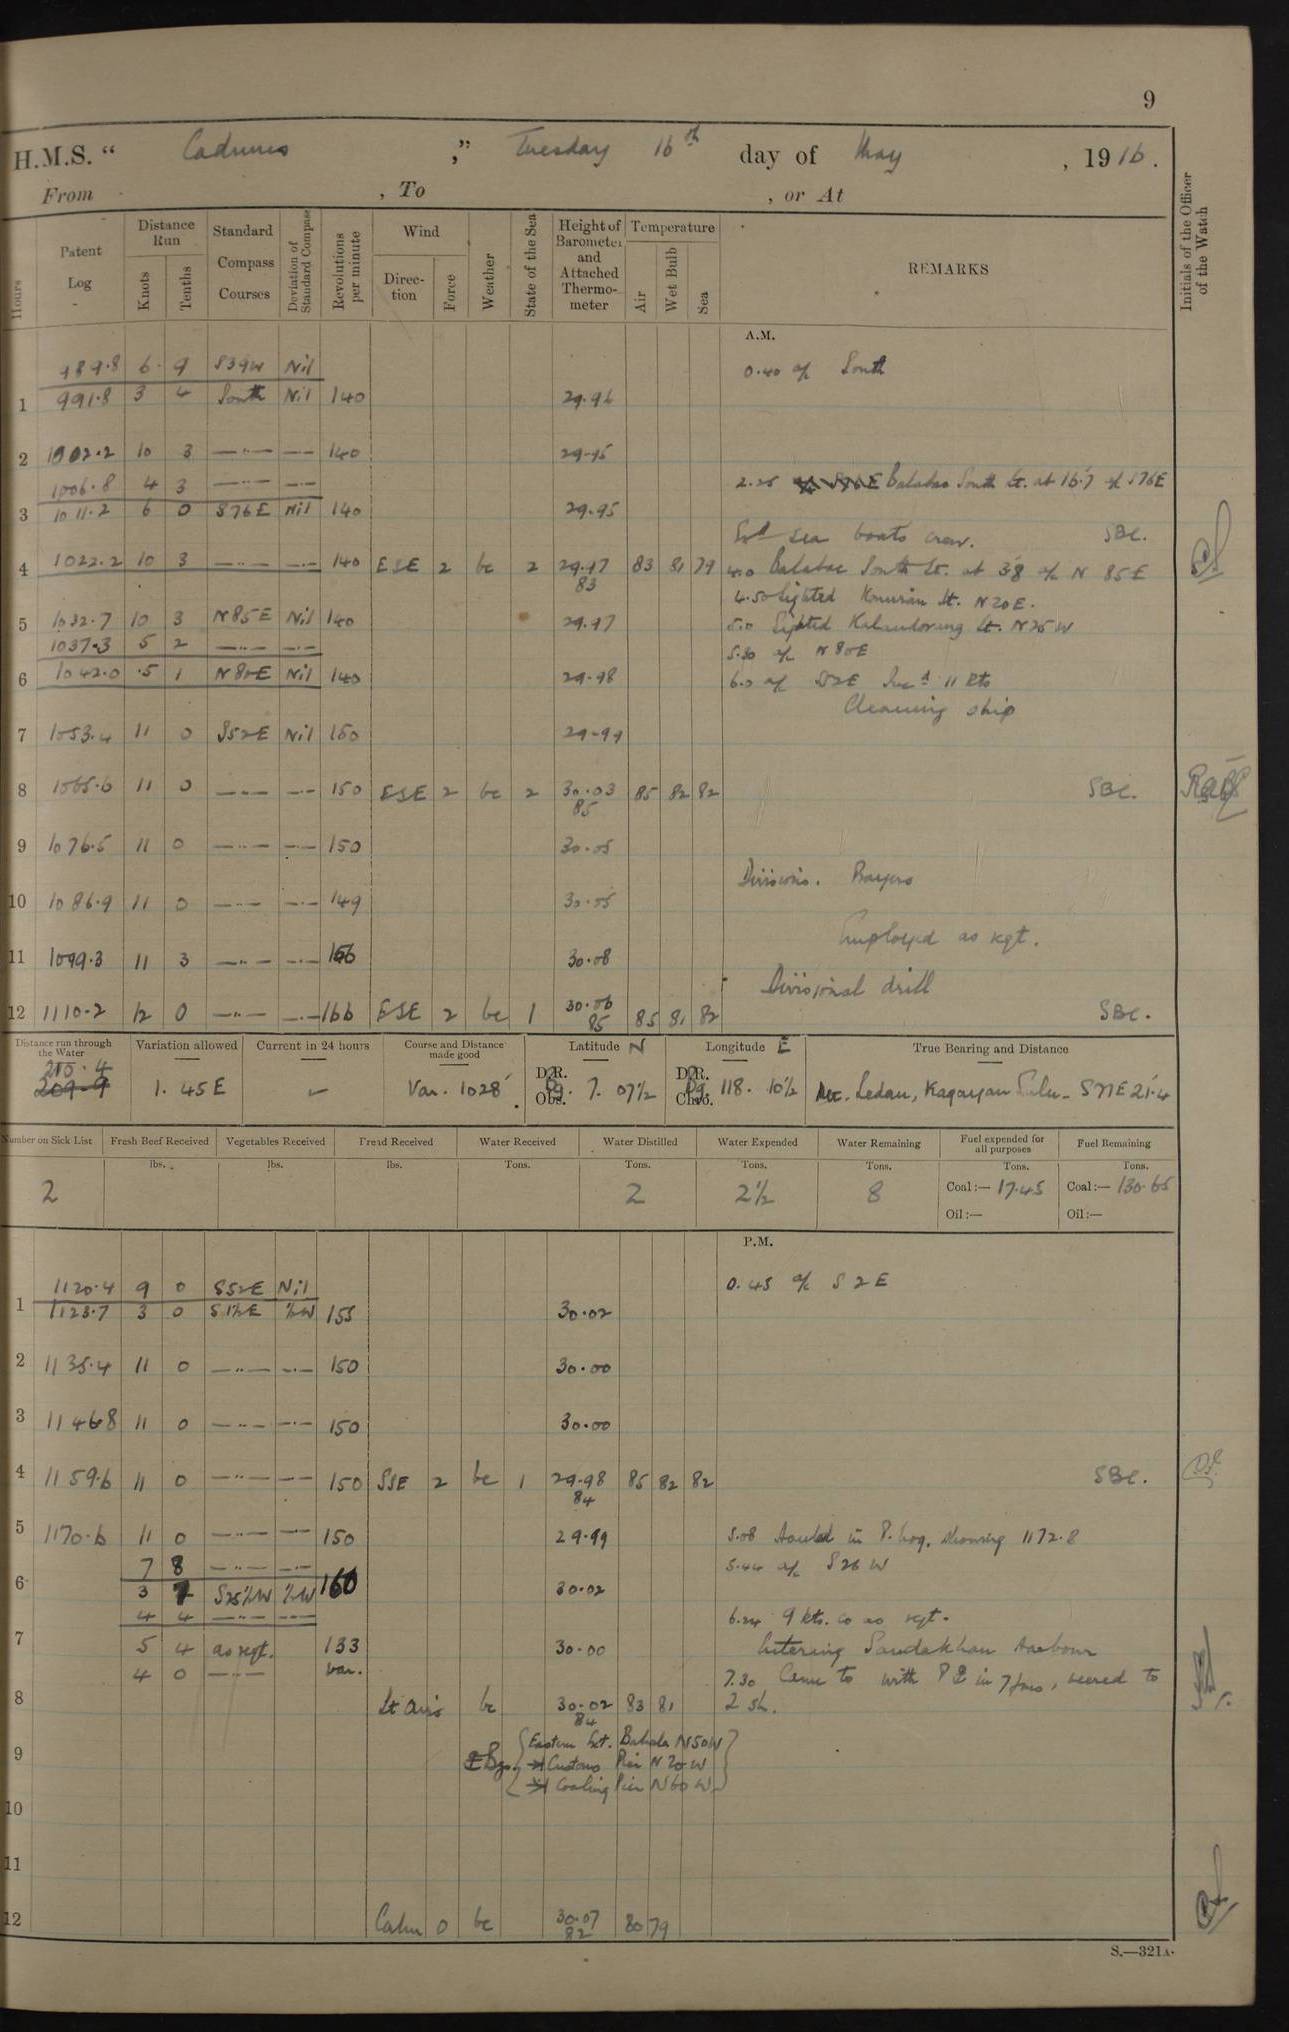 9
H.M.S. “ Cadmus ,” Tuesday 16th day of May , 1916.
From , To , or At
Hours
Patent Log
Distance Run
Knots
Tenths
Standard Compass Courses
Deviation of Standard Compass
Revolutions per minute
Wind
Direction
Force
Weather
State of the Sea
Height of Barometer and Attached Thermometer
Temperature
Air
Wet Bulb
Sea
REMARKS
Initials of the Officer of the Watch
A.M.
989.8 6 9 S39W Nil 0.40 a/c South
1 991.8 3 4 South Nil 140 29.96
2 1002.2 10 3 —"— —"— 140 29.95
1006.8 4 3 —"— —"— 2.25 Balabac South Lt. at 16.7 a/c S76E
3 1011.2 6 0 S76E Nil 140 29.95
Exd sea boats crew. SBC.
4 1022.2 10 3 —"— —"— 140 ESE 2 bc 2 29.97 83 83 81 79 4.0 Balabac South Lt. at 38 a/c N 85E
4.50 Sighted Lt. N20E.
5 1032.7 10 3 N85E Nil 140 29.97 5.0 Sighted Kalandorang Lt. N25W
1037.3 5 2 —"— —"— 5.30 a/c N80E
6 1042.0 5 1 N80E Nil 140 29.98 6.0 a/c S52E Incd 11 kts
Cleaning ship
7 1053.4 11 0 S52E Nil 150 29.99
8 1065.6 11 0 —"— —"— 150 ESE 2 bc 2 30.03 85 85 82 82 SBC.
9 1076.5 11 0 —"— —"— 150 30.05
Divisions. Prayers
10 1086.9 11 0 —"— —"— 149 30.05
Employed as reqt.
11 1099.3 11 3 —"— —"— 156 30.08
Divisional drill
12 1110.2 12 0 —"— —"— 166 ESE 2 bc 1 30.06 85 85 81 82 SBC.
Distance run through the Water
210.4
209.9
Variation allowed
1. 45E
Current in 24 hours
Course and Distance made good
Var. 102.8'
Latitude N
D.R.
Obs. 7. 07½
Longitude E
D.R.
Chro. 118. 10½
True Bearing and Distance
Mt. Ledan, Kagayan Sulu - S71E 21.4
Number on Sick List
2
Fresh Beef Received
lbs.
Vegetables Received
lbs.
Bread Received
lbs.
Water Received
Tons.
Water Distilled
Tons.
2
Water Expended
Tons.
2½
Water Remaining
Tons.
8
Fuel expended for all purposes
Tons.
Coal:— 17.45
Oil:—
Fuel Remaining
Tons.
Coal:— 130.65
Oil:—
P.M.
1120.4 9 0 S52E Nil 0.45 a/c S 2 E
1 1123.7 3 0 S1½E ½W 155 30.02
2 1135.4 11 0 —"— —"— 150 30.00
3 1146.8 11 0 —"— —"— 150 30.00
4 1159.6 11 0 —"— —"— 150 SSE 2 bc 1 29.98 84 85 82 82 SBC.
5 1170.6 11 0 —"— —"— 150 29.99 5.08 Hauled in P. Log, showing 1172.8
7 8 —"— —"— 5.44 a/c S26W
6 3 7 S25½W ½W 160 30.02
4 4 —"— —"— 6.24 9 kts. Co as reqt.
7 5 4 as reqt. 133 30.00 Entering Sandakhan Harbour
4 0 —"— var. 7.30 Came to with P in 7 fms, veered to
8 Lt Airs bc 30.02 84 83 81 2 sh.
Eastern Ext. Bahala N50W
9 Bgs. Customs Pier N20W
Coaling Pier N60W
10
11
12 Calm 0 bc 30.07 82 80 79
S.—321A.